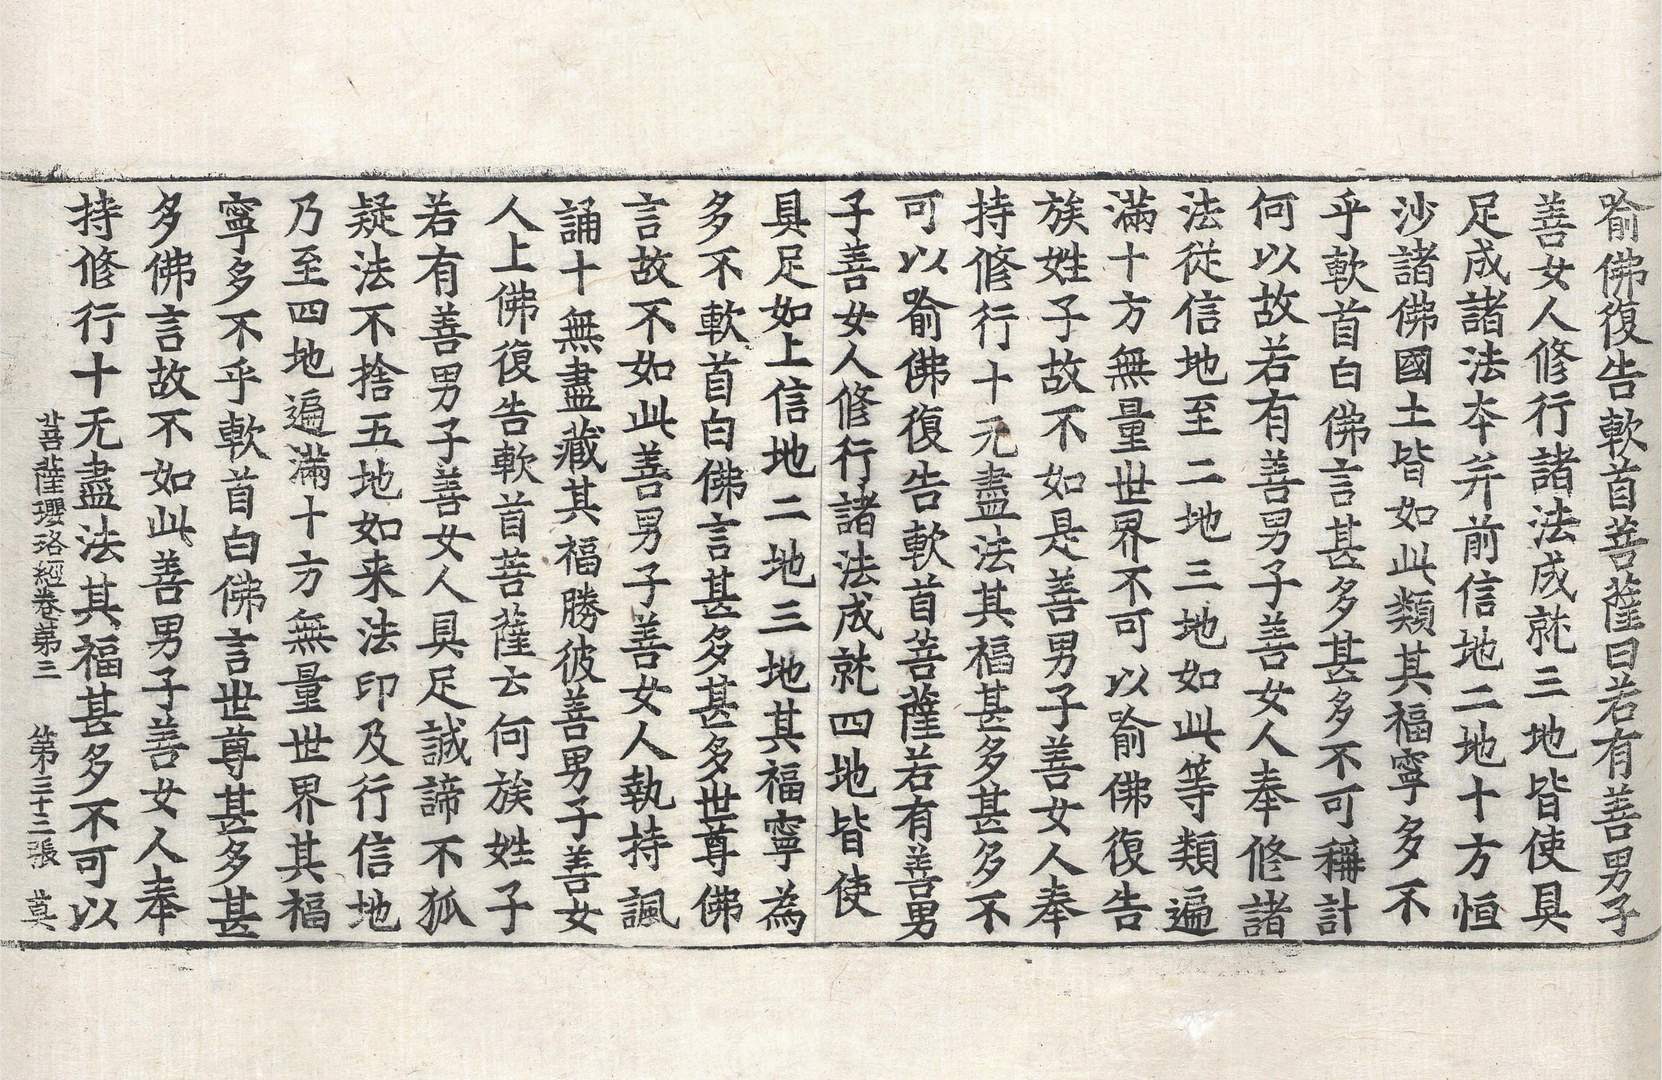 喻佛復告軟首菩薩曰若有善男子
善女人修行諸法成就三地皆使具
足成諸法夲并前信地二地十方恒
沙諸佛國土皆如此類其福寧多不
乎軟首白佛言甚多甚多不可稱計
何以故若有善男子善女人奉修諸
法從信地至二地三地如此等類遍
滿十方無量世界不可以喻佛復告
族姓子故不如是善男子善女人奉
持修行十无盡法其福甚多甚多不
可以喻佛復告軟首菩薩若有善男
子善女人修行諸法成就四地皆使
具足如上信地二地三地其福寧為
多不軟首白佛言甚多甚多世尊佛
言故不如此善男子善女人執持諷
誦十無盡藏其福勝彼善男子善女
人上佛復告軟首菩薩云何族姓子
若有善男子善女人具足誠諦不狐
疑法不捨五地如来法印及行信地
乃至四地遍滿十方無量世界其福
寧多不乎軟首白佛言世尊甚多甚
多佛言故不如此善男子善女人奉
持修行十无盡法其福甚多不可以
菩薩瓔珞經卷第三 第三十三張 莫